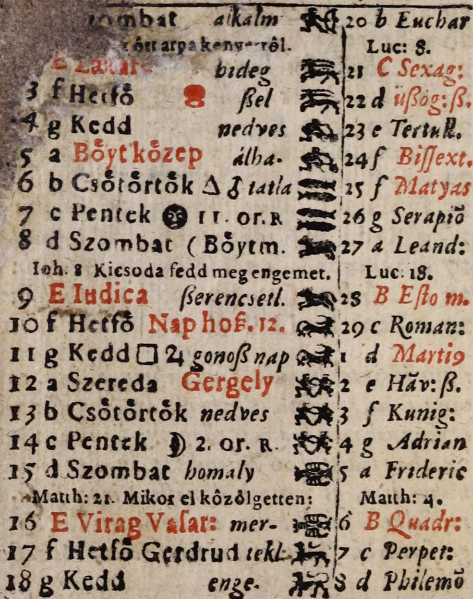 zombat alkalm 20 b Euchar
ött arpa kenyerröl. Luc: 8.
E bideg 21 C Sexag:
3 f Hetfö ßel 22 d üßög: ß.
4 g Kedd nedves 23 e Tertull.
5 a Böyt közep álha- 24 f Bissext.
6 b Csötörtök Δ ♂ tatla 25 f Matyas
7 c Pentek 11. or. R 26 g Serapiö
8 d Szombat (Böytm. 27 a Leand:
Ioh. 8 Kicsoda fedd meg engemet. Luc: 18.
9 E Iudica ßerencsetl. 28 B Esto m.
10 f Hetfö Nap hoß. 12. 29 c Roman:
11 g Kedd □ ♃ gonoß nap 1 d Marti9
12 a Szereda Gergely 2 e Hãv: ß.
13 b Csötörtök nedves 3 f Kunig:
14 c Pentek ☽ 2. or. R. 4 g Adrian
15 d Szombat homaly 5 a Frideric
Matth: 21. Mikor el közölgetten: Matth: 4.
16 E Virag Vasar: mer- 6 B Quadr:
17 f Hetfö Gerdrud tekl. 7 c Perpet:
18 g Kedd enge- 8 d Philemö